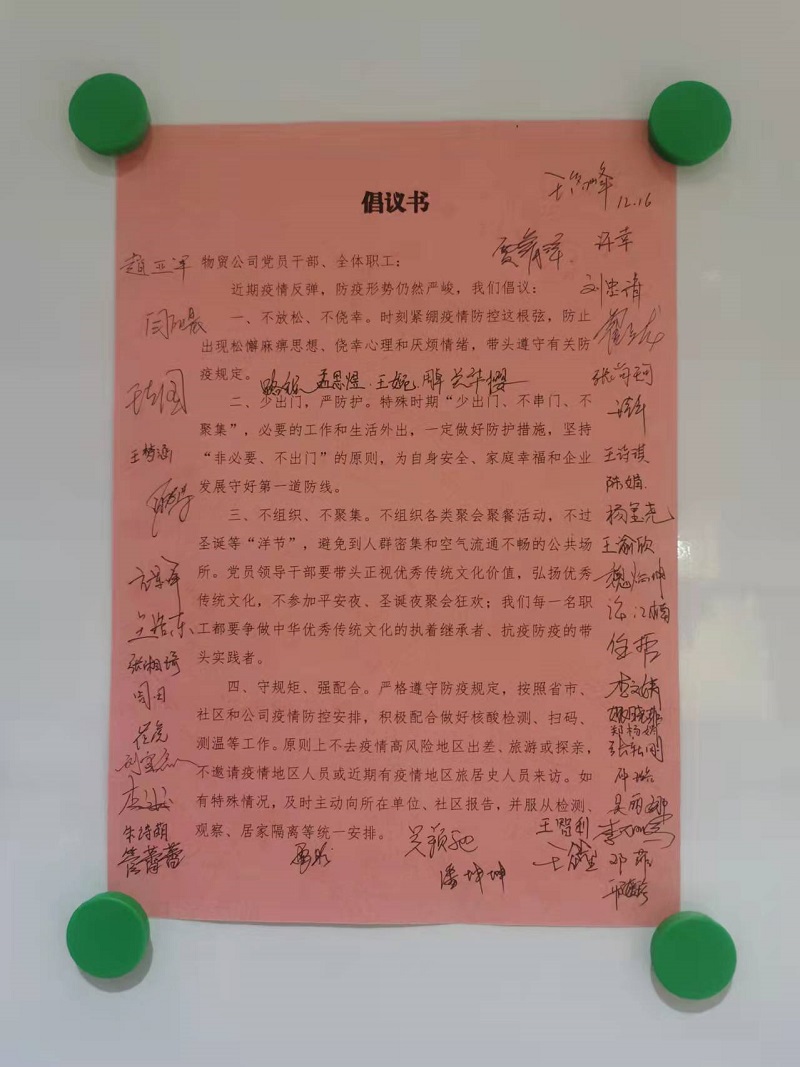 倡议书
12.16
物贸公司党员干部、全体职工：
近期疫情反弹，防疫形势仍然严峻，我们倡议：
一、不放松、不侥幸。时刻紧绷疫情防控这根弦，防止
出现松懈麻痹思想、侥幸心理和厌烦情绪，带头遵守有关防
疫规定。
二、少出门，严防护。特殊时期“少出门、不串门、不
聚集”，必要的工作和生活外出，一定做好防护措施，坚持
“非必要、不出门”的原则，为自身安全、家庭幸福和企业
发展守好第一道防线。
三、不组织、不聚集。不组织各类聚会聚餐活动，不过
圣诞等“洋节”，避免到人群密集和空气流通不畅的公共场
所。党员领导干部要带头正视优秀传统文化价值，弘扬优秀
传统文化，不参加平安夜、圣诞夜聚会狂欢；我们每一名职
工都要争做中华优秀传统文化的执着继承者、抗疫防疫的带
头实践者。
四、守规矩、强配合。严格遵守防疫规定，按照省市、
社区和公司疫情防控安排，积极配合做好核酸检测、扫码、
测温等工作。原则上不去疫情高风险地区出差、旅游或探亲，
不邀请疫情地区人员或近期有疫情地区旅居史人员来访。如
有特殊情况，及时主动向所在单位、社区报告，并服从检测、
观察、居家隔离等统一安排。
赵亚军
王梦涵
张湘琦
闫丹
崔虎
朱诗萌
管蕾蕾
孟思煜
潘坤坤
王智利
许幸
刘忠靖
王诗琪
陈娟
杨玺尧
王渝欣
任哲
李文婧
郑杨婷
吴丽娜
邓菲